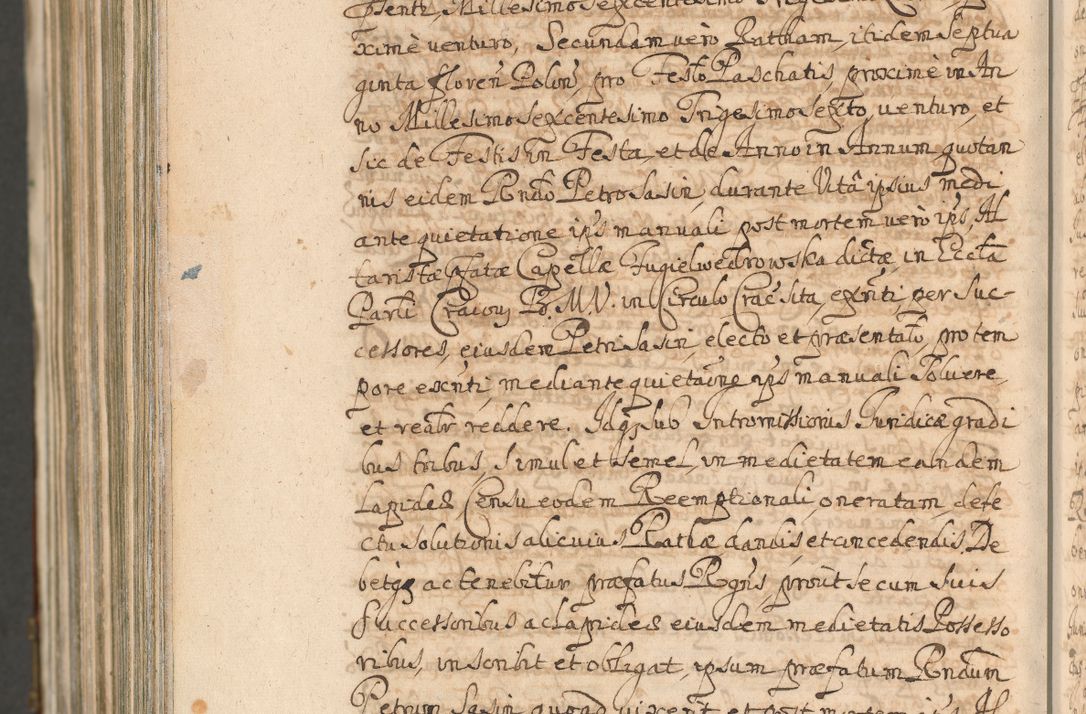 ximè venturo, Secundam vero Ratham, itidem septua
ginta floreñ Polon, pro Festo Paschatis, proximè in An
no Millesimo sexcentesimo Trigesimo sexto, venturo, et
sic de Festis in Festa, et de Anno in Annum quotan
nis eidem Rndo Petro Sasin, durante Vitâ ipsius medi
ante quietatione ips manuali post mortem vero ips, Al
taristæ pfatæ Capellæ Fugielwedrowska dictæ, in Eccta
Parli Cracov B. M. V. in Circulo Crac sita, exñti, per Suc-
cessores, eiusdem Petri Sasin, electo et præsentato, pro tem
pore exñti, mediante quietaõne ips manuali Solvere,
et realr reddere. Idq sub Intromissionis Juridicæ gradi
bus tribus, simul et semel, in medietatem eandem
Lapideæ Censu eodem Reemptionali oneratam, defe
ctu solutionis alicuius Rathæ, dandis et concedendis, De
betqz ac tenebitur præfatus Rgñs, prout se cum suis
successoribus ac Lapideæ eiusdem medietatis Possesso
ribus, inscribit et obligat, ipsum præfatum Rndum